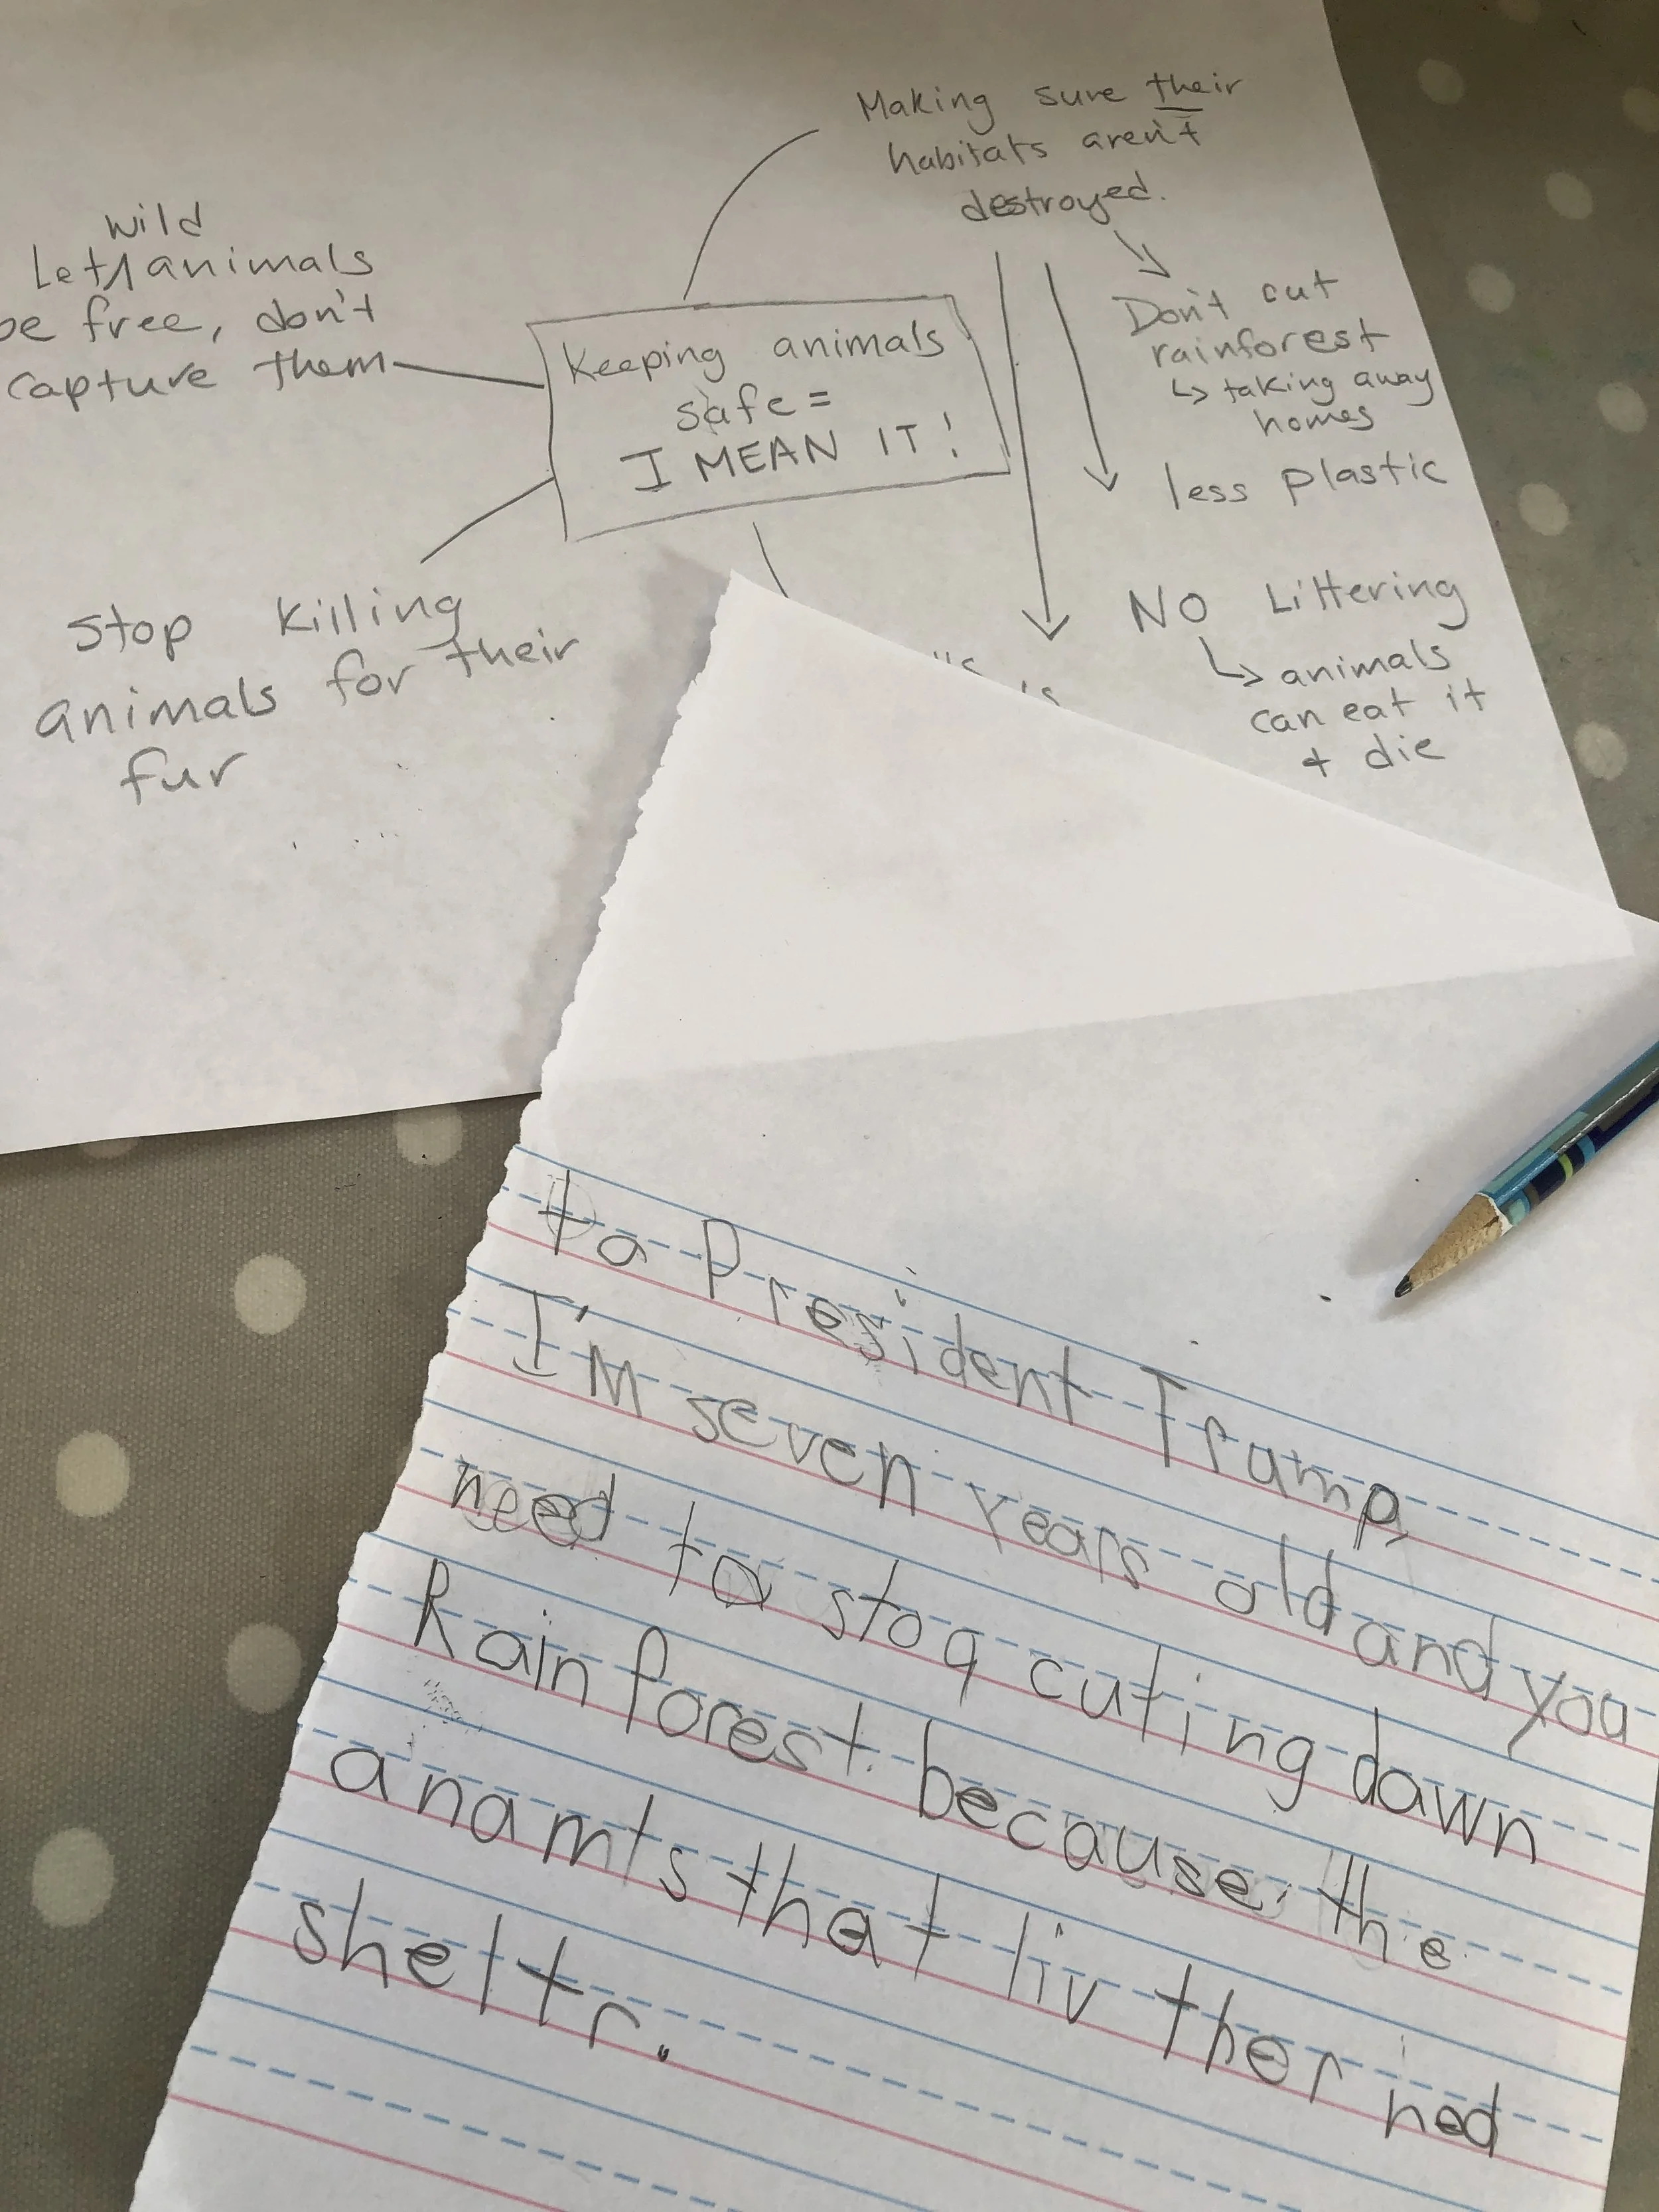 Making sure their
habitats aren't
destroyed.
Don't cut
rainforest
↳ taking away
homes
less plastic
NO Littering
↳ animals
can eat it
+ die
wild
Let animals
be free, don't
capture them
Keeping animals
safe =
I MEAN IT!
Stop killing
animals for their
fur
to President Trump,
I'm seven years old and you
need to stoq cuting down
Rain forest because the
anamls that liv ther ned
sheltr.